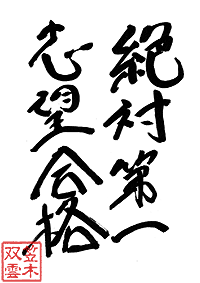 絶対第一
志望合格
笠木
双雲